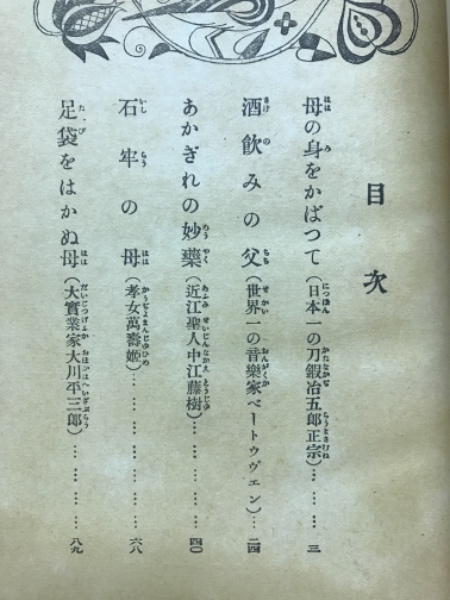 目次
母の身をかばつて(日本一の刀鍛冶五郎正宗)………三
酒飲みの父(世界一の音樂家ベートウヴェン)…二四
あかぎれの妙藥(近江聖人中江藤樹)…………四〇
石牢の母(孝女萬壽姬)………………六八
足袋をはかぬ母(大實業家大川平三郎)…………八九